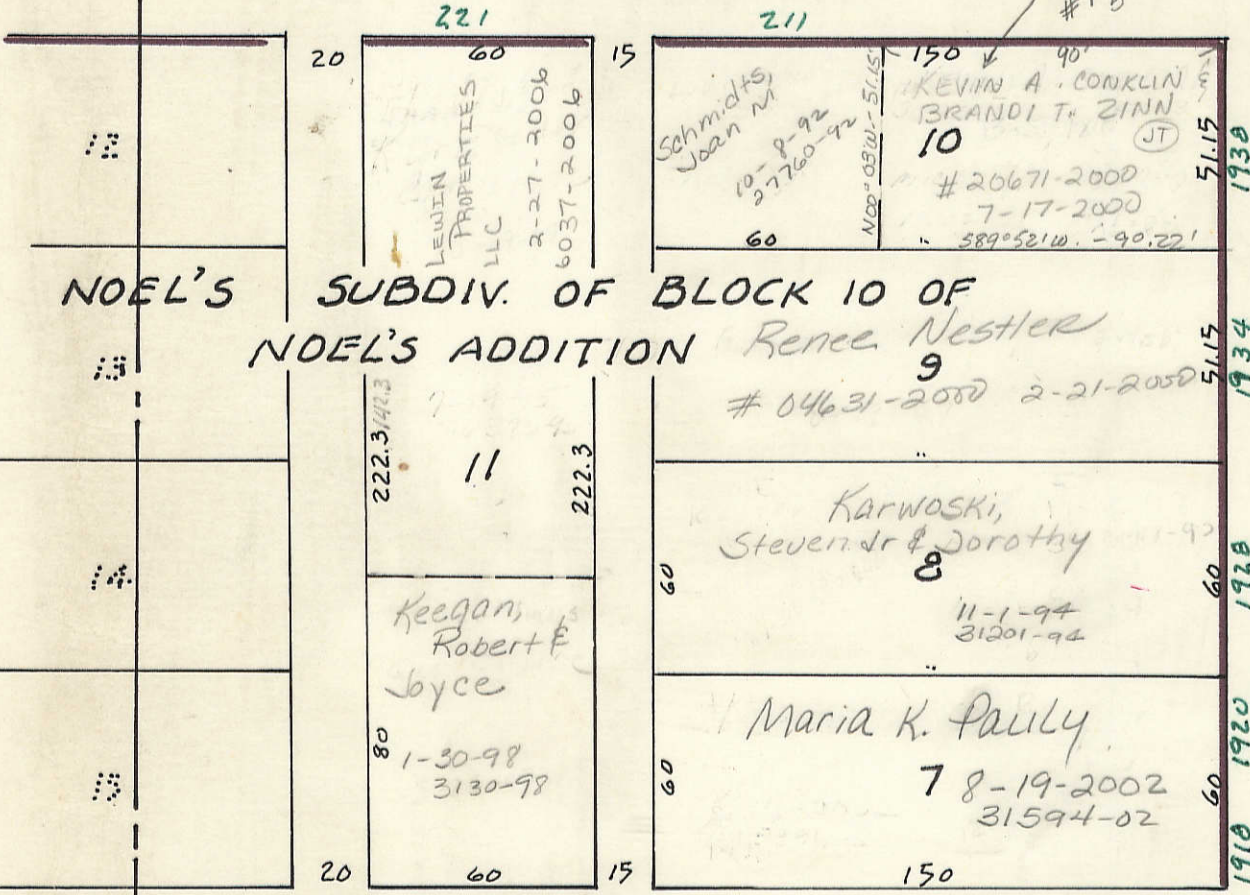 221
211
20
60
15
150
90'
LEWIN
PROPERTIES
LLC
2-27-2006
6037-2006
Schmidts,
Joan M
10-8-92
27760-92
N00°03'W.-51.15'
KEVIN A. CONKLIN &
BRANDI T. ZINN
10
JT
#20671-2000
7-17-2000
S89°52'W. - 90.22'
51.15
1938
60
12
NOEL'S SUBDIV. OF BLOCK 10 OF
NOEL'S ADDITION
Renee Nestler
9
# 04631-2000 2-21-2000
51.15
1934
13
222.3
142.3
11
222.3
Karwoski,
Steven Jr & Dorothy
8
11-1-94
31201-94
60
60
1928
14
Keegan,
Robert &
Joyce
80
1-30-98
3130-98
Maria K. Pauly
7 8-19-2002
31594-02
60
60
1920
1918
20
60
15
150